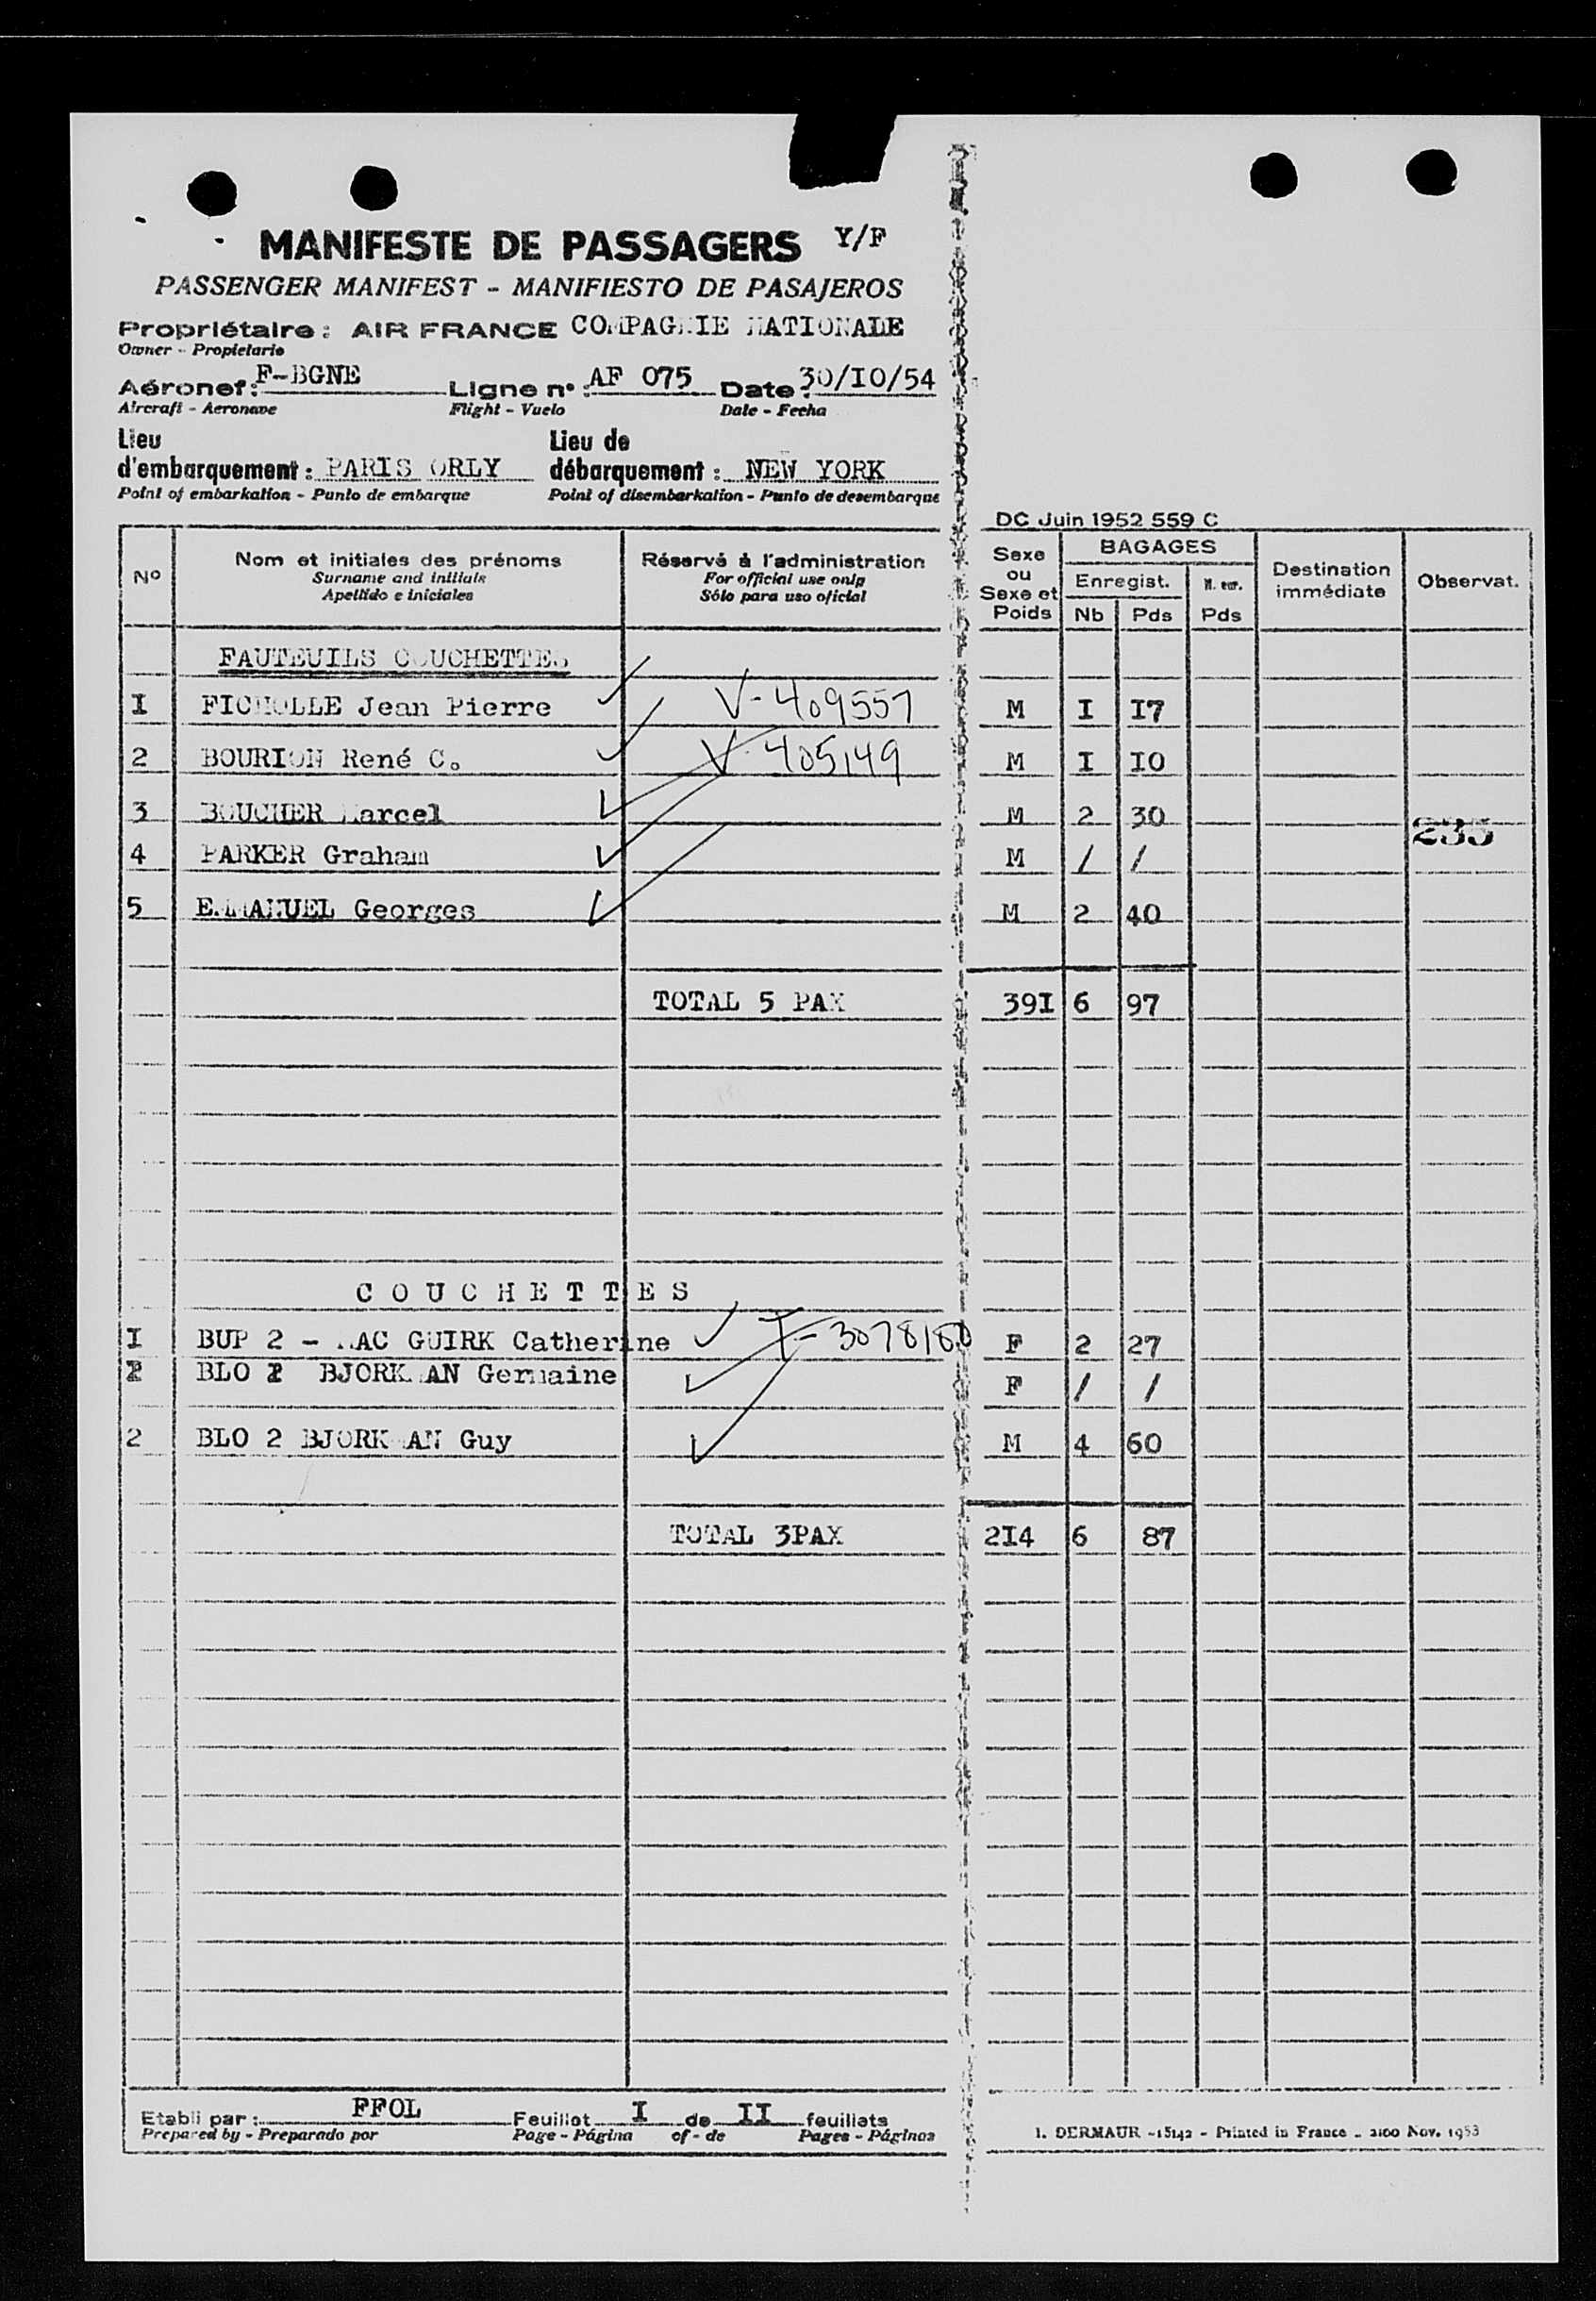 MANIFESTE DE PASSAGERS Y/F
PASSENGER MANIFEST - MANIFIESTO DE PASAJEROS
Propriétaire : AIR FRANCE COMPAGNIE NATIONALE
Owner - Propietario
Aéronef : F-BGNE Ligne n° : AF 075 Date : 30/I0/54
Aircraft - Aeronave Flight - Vuelo Date - Fecha
Lieu d'embarquement : PARIS ORLY Lieu de débarquement : NEW YORK
Point of embarkation - Punto de embarque Point of disembarkation - Punto de desembarque
DC Juin 1952 559 C
N° Nom et initiales des prénoms Réservé à l'administration Sexe ou Sexe et Poids BAGAGES Destination immédiate Observat.
Surname and initials For official use only Enregist. N. enr.
Apellido e iniciales Sólo para uso oficial Nb Pds Pds
FAUTEUILS COUCHETTES
I FICHOLLE Jean Pierre V-409557 M I I7
2 BOURION René C. V-405149 M I I0
3 BOUCHER Marcel M 2 30
235
4 PARKER Graham M / /
5 EMMANUEL Georges M 2 40
TOTAL 5 PAX 39I 6 97
C O U C H E T T E S
I BUP 2 - MAC GUIRK Catherine T-3078180 F 2 27
BLO BJORKMAN Germaine F / /
2 BLO 2 BJORKMAN Guy M 4 60
TOTAL 3PAX 2I4 6 87
Etabli par : FFOL Feuillet I de II feuillets
Prepared by - Preparado por Page - Página of - de Pages - Páginas
I. DERMAUR -15142 - Printed in France - 2100 Nov. 1953